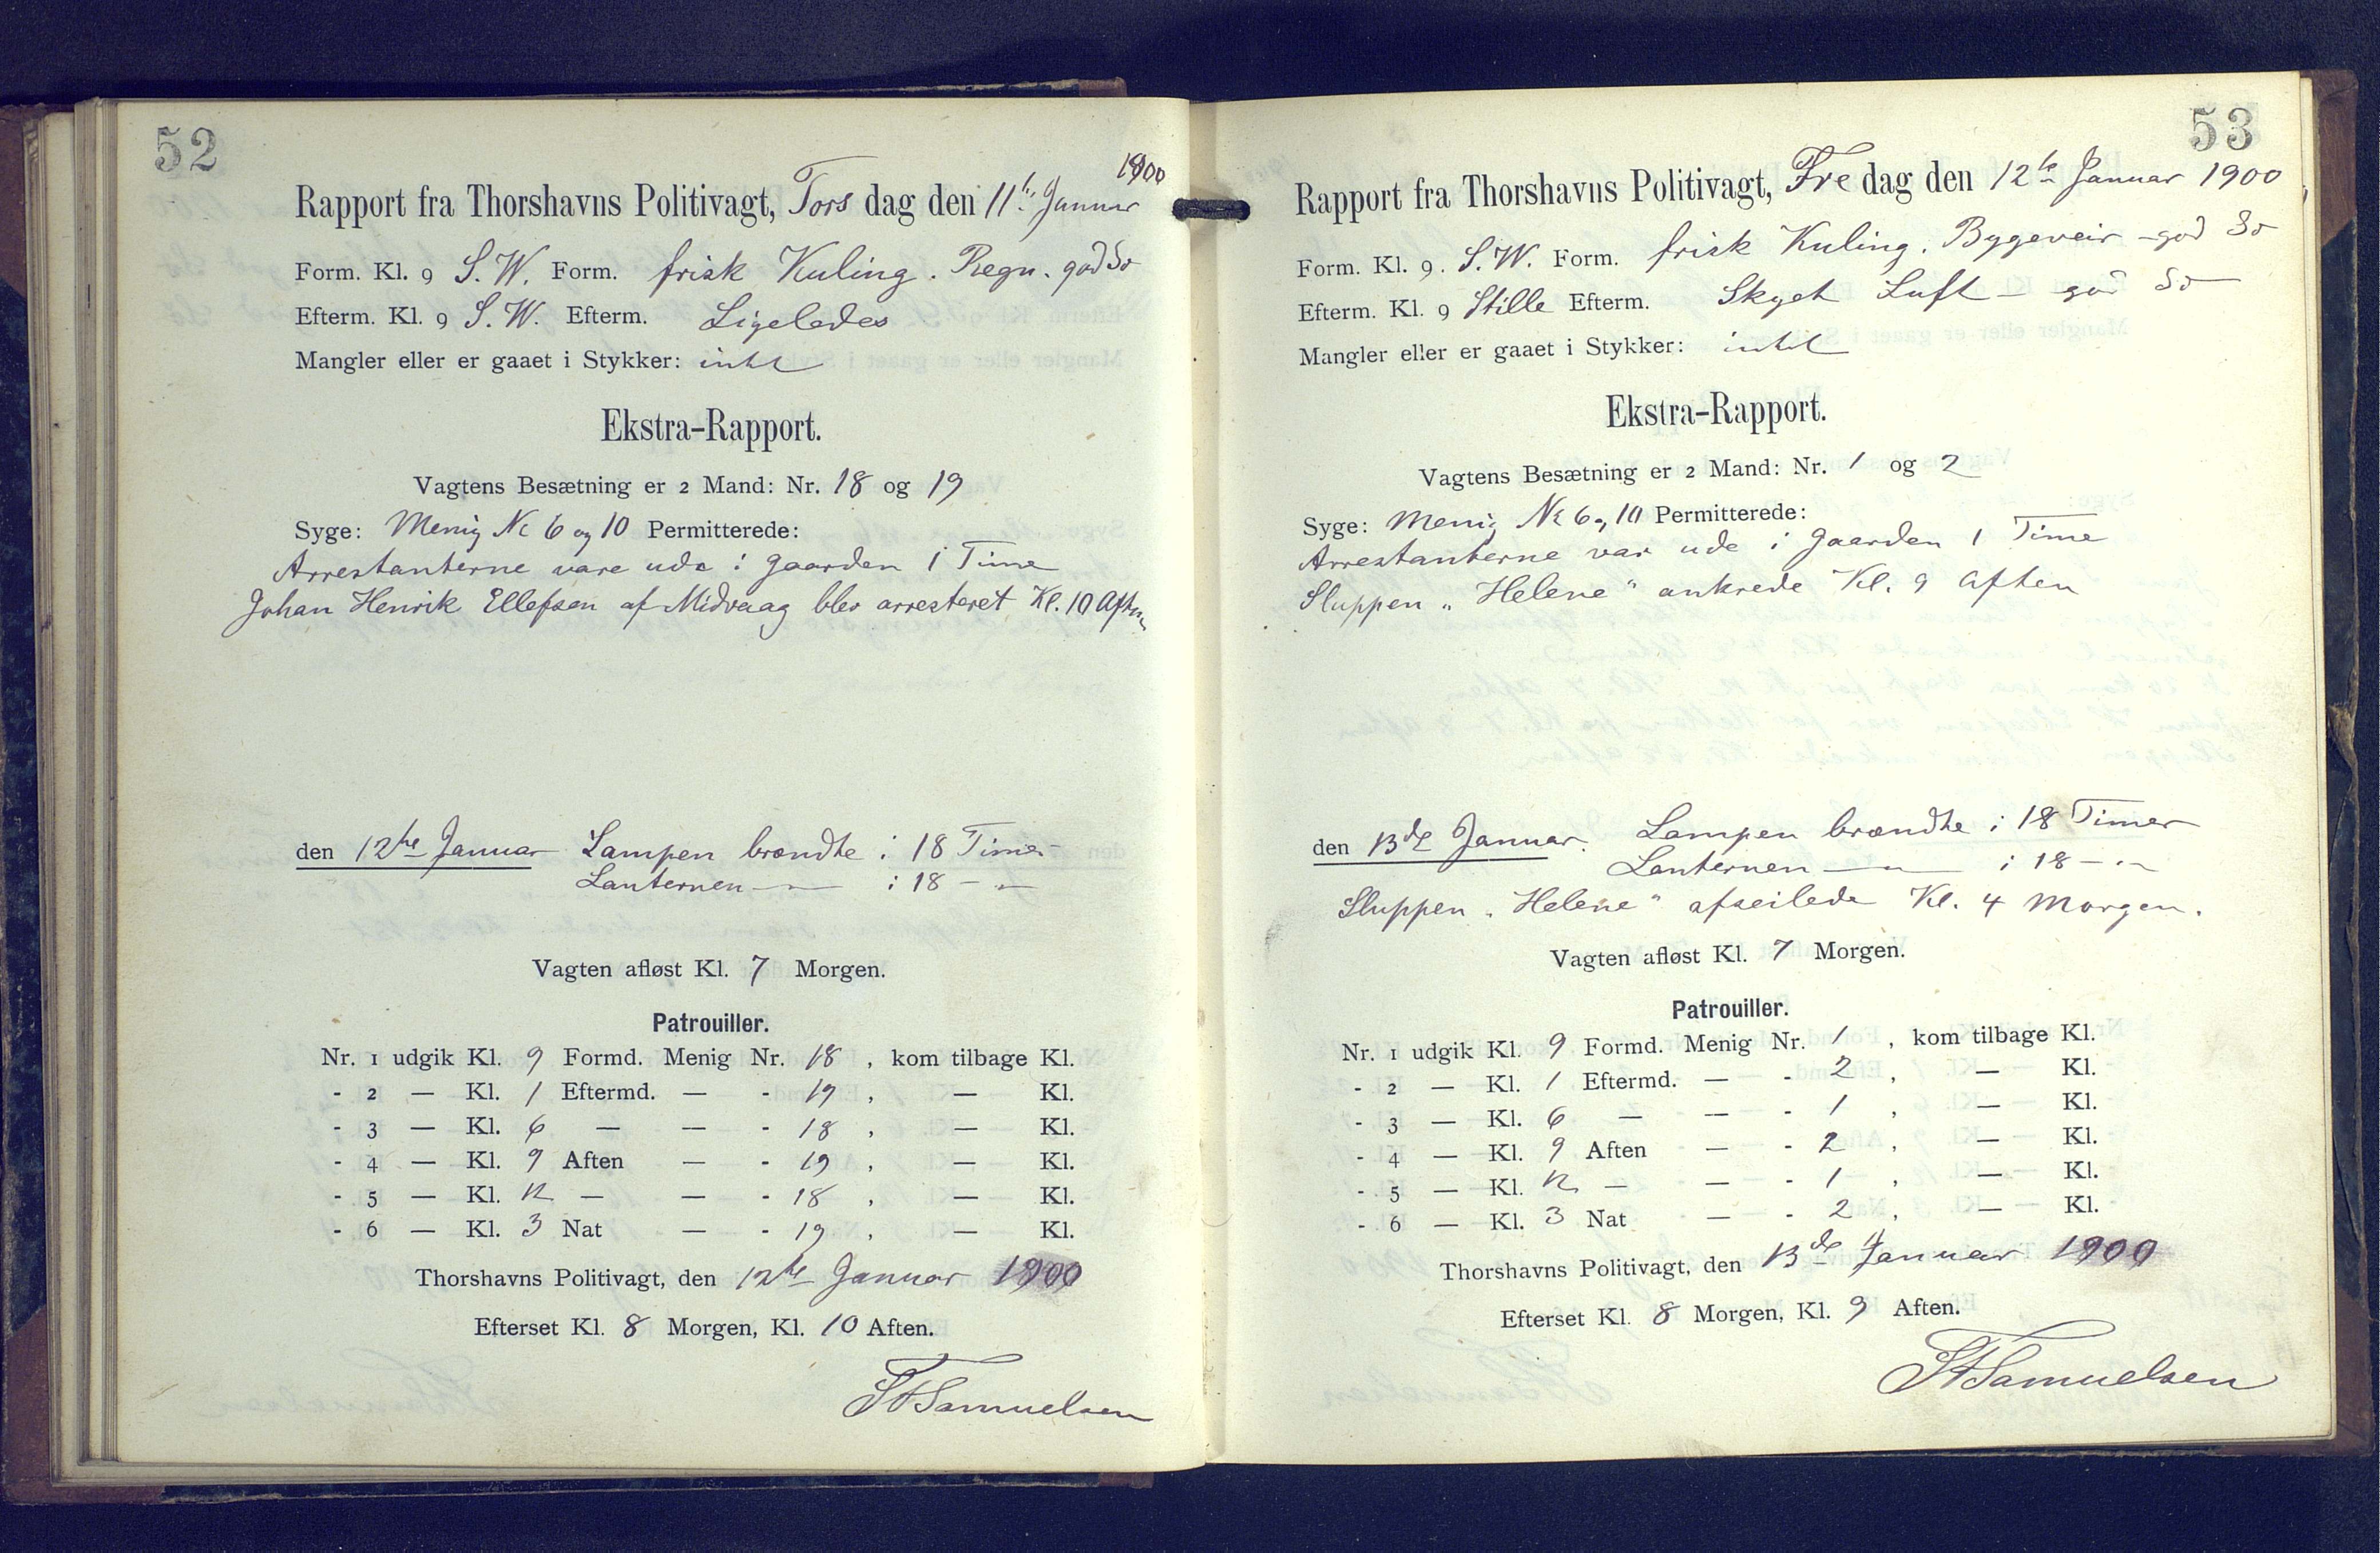 52
1900
Rapport fra Thorshavns Politivagt, Tors dag den 11te Januar
Form. Kl. 9 S. W. Form. frisk Kuling. Regn. god Do
Efterm. Kl. 9 S. W. Efterm. Ligeledes
Mangler eller er gaaet i Stykker: intet
Ekstra-Rapport.
Vagtens Besætning er 2 Mand: Nr. 18 og 19
Syge: Menig No 6 og 10 Permitterede:
Arrestanterne vare ude i Gaarden 1 Time
Johan Henrik Ellefsen af Midvaag blev arresteret Kl. 10 Aften
den 12te Januar Lampen brændte i 18 Timer
Lanternen — " — i 18 — " —
Vagten afløst Kl. 7 Morgen.
Patrouiller.
Nr. 1 udgik Kl. 9 Formd. Menig Nr. 18 , kom tilbage Kl.
- 2 — Kl. 1 Eftermd. — - 19 , — Kl.
- 3 — Kl. 6 — — - 18 , — Kl.
- 4 — Kl. 9 Aften — - 19 , — Kl.
- 5 — Kl. 12 — — - 18 , — Kl.
- 6 — Kl. 3 Nat — - 19 , — Kl.
Thorshavns Politivagt, den 12te Januar 1900
Efterset Kl. 8 Morgen, Kl. 10 Aften.
Samuelsen
53
Rapport fra Thorshavns Politivagt, Fre dag den 12te Januar 1900
Form. Kl. 9. S. W. Form. frisk Kuling. Bygeveir - god Do
Efterm. Kl. 9 Stille Efterm. Skyet Luft - god Do
Mangler eller er gaaet i Stykker: intet
Ekstra-Rapport.
Vagtens Besætning er 2 Mand: Nr. 1 og 2
Syge: Menig No 6 og 10 Permitterede:
Arrestanterne var ude i Gaarden 1 Time
Sluppen „Helene" ankrede Kl. 9 Aften
den 13de Januar. Lampen brændte i 18 Timer
Lanternen — " — i 18 — " —
Sluppen „Helene" afseilede Kl. 4 Morgen.
Vagten afløst Kl. 7 Morgen.
Patrouiller.
Nr. 1 udgik Kl. 9 Formd. Menig Nr. 1 , kom tilbage Kl.
- 2 — Kl. 1 Eftermd. — - 2 , — Kl.
- 3 — Kl. 6 — — - 1 , — Kl.
- 4 — Kl. 9 Aften — - 2 , — Kl.
- 5 — Kl. 12 — — - 1 , — Kl.
- 6 — Kl. 3 Nat — - 2 , — Kl.
Thorshavns Politivagt, den 13de Januar 1900
Efterset Kl. 8 Morgen, Kl. 9 Aften.
Samuelsen